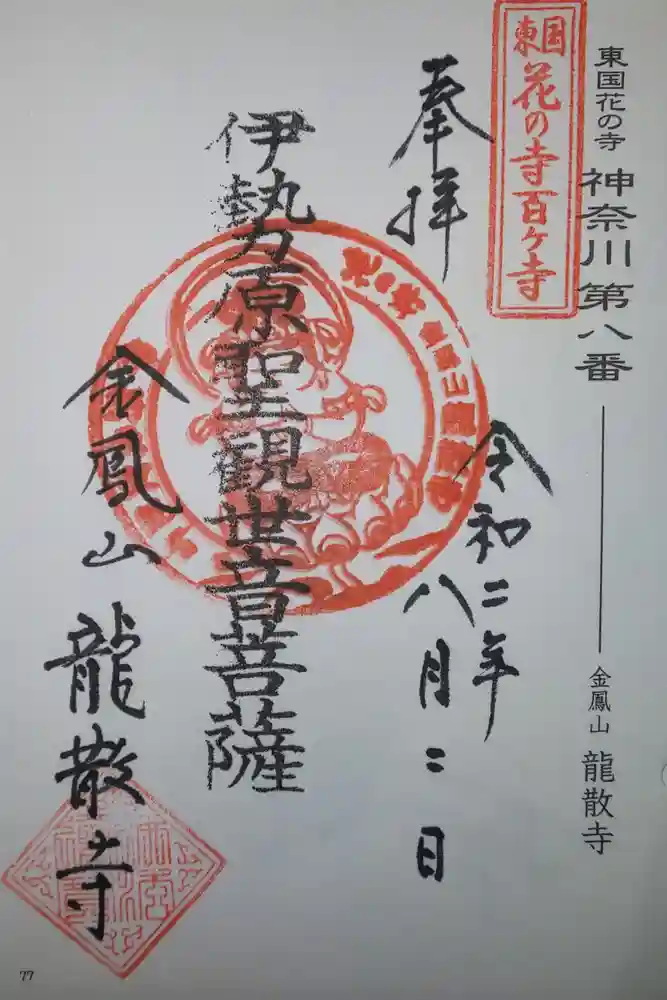 東国花の寺 神奈川第八番
金鳳山 龍散寺
東国花の寺百ケ寺
奉拝
令和二年
八月二日
伊勢原聖観世音菩薩
金鳳山 龍散寺
77